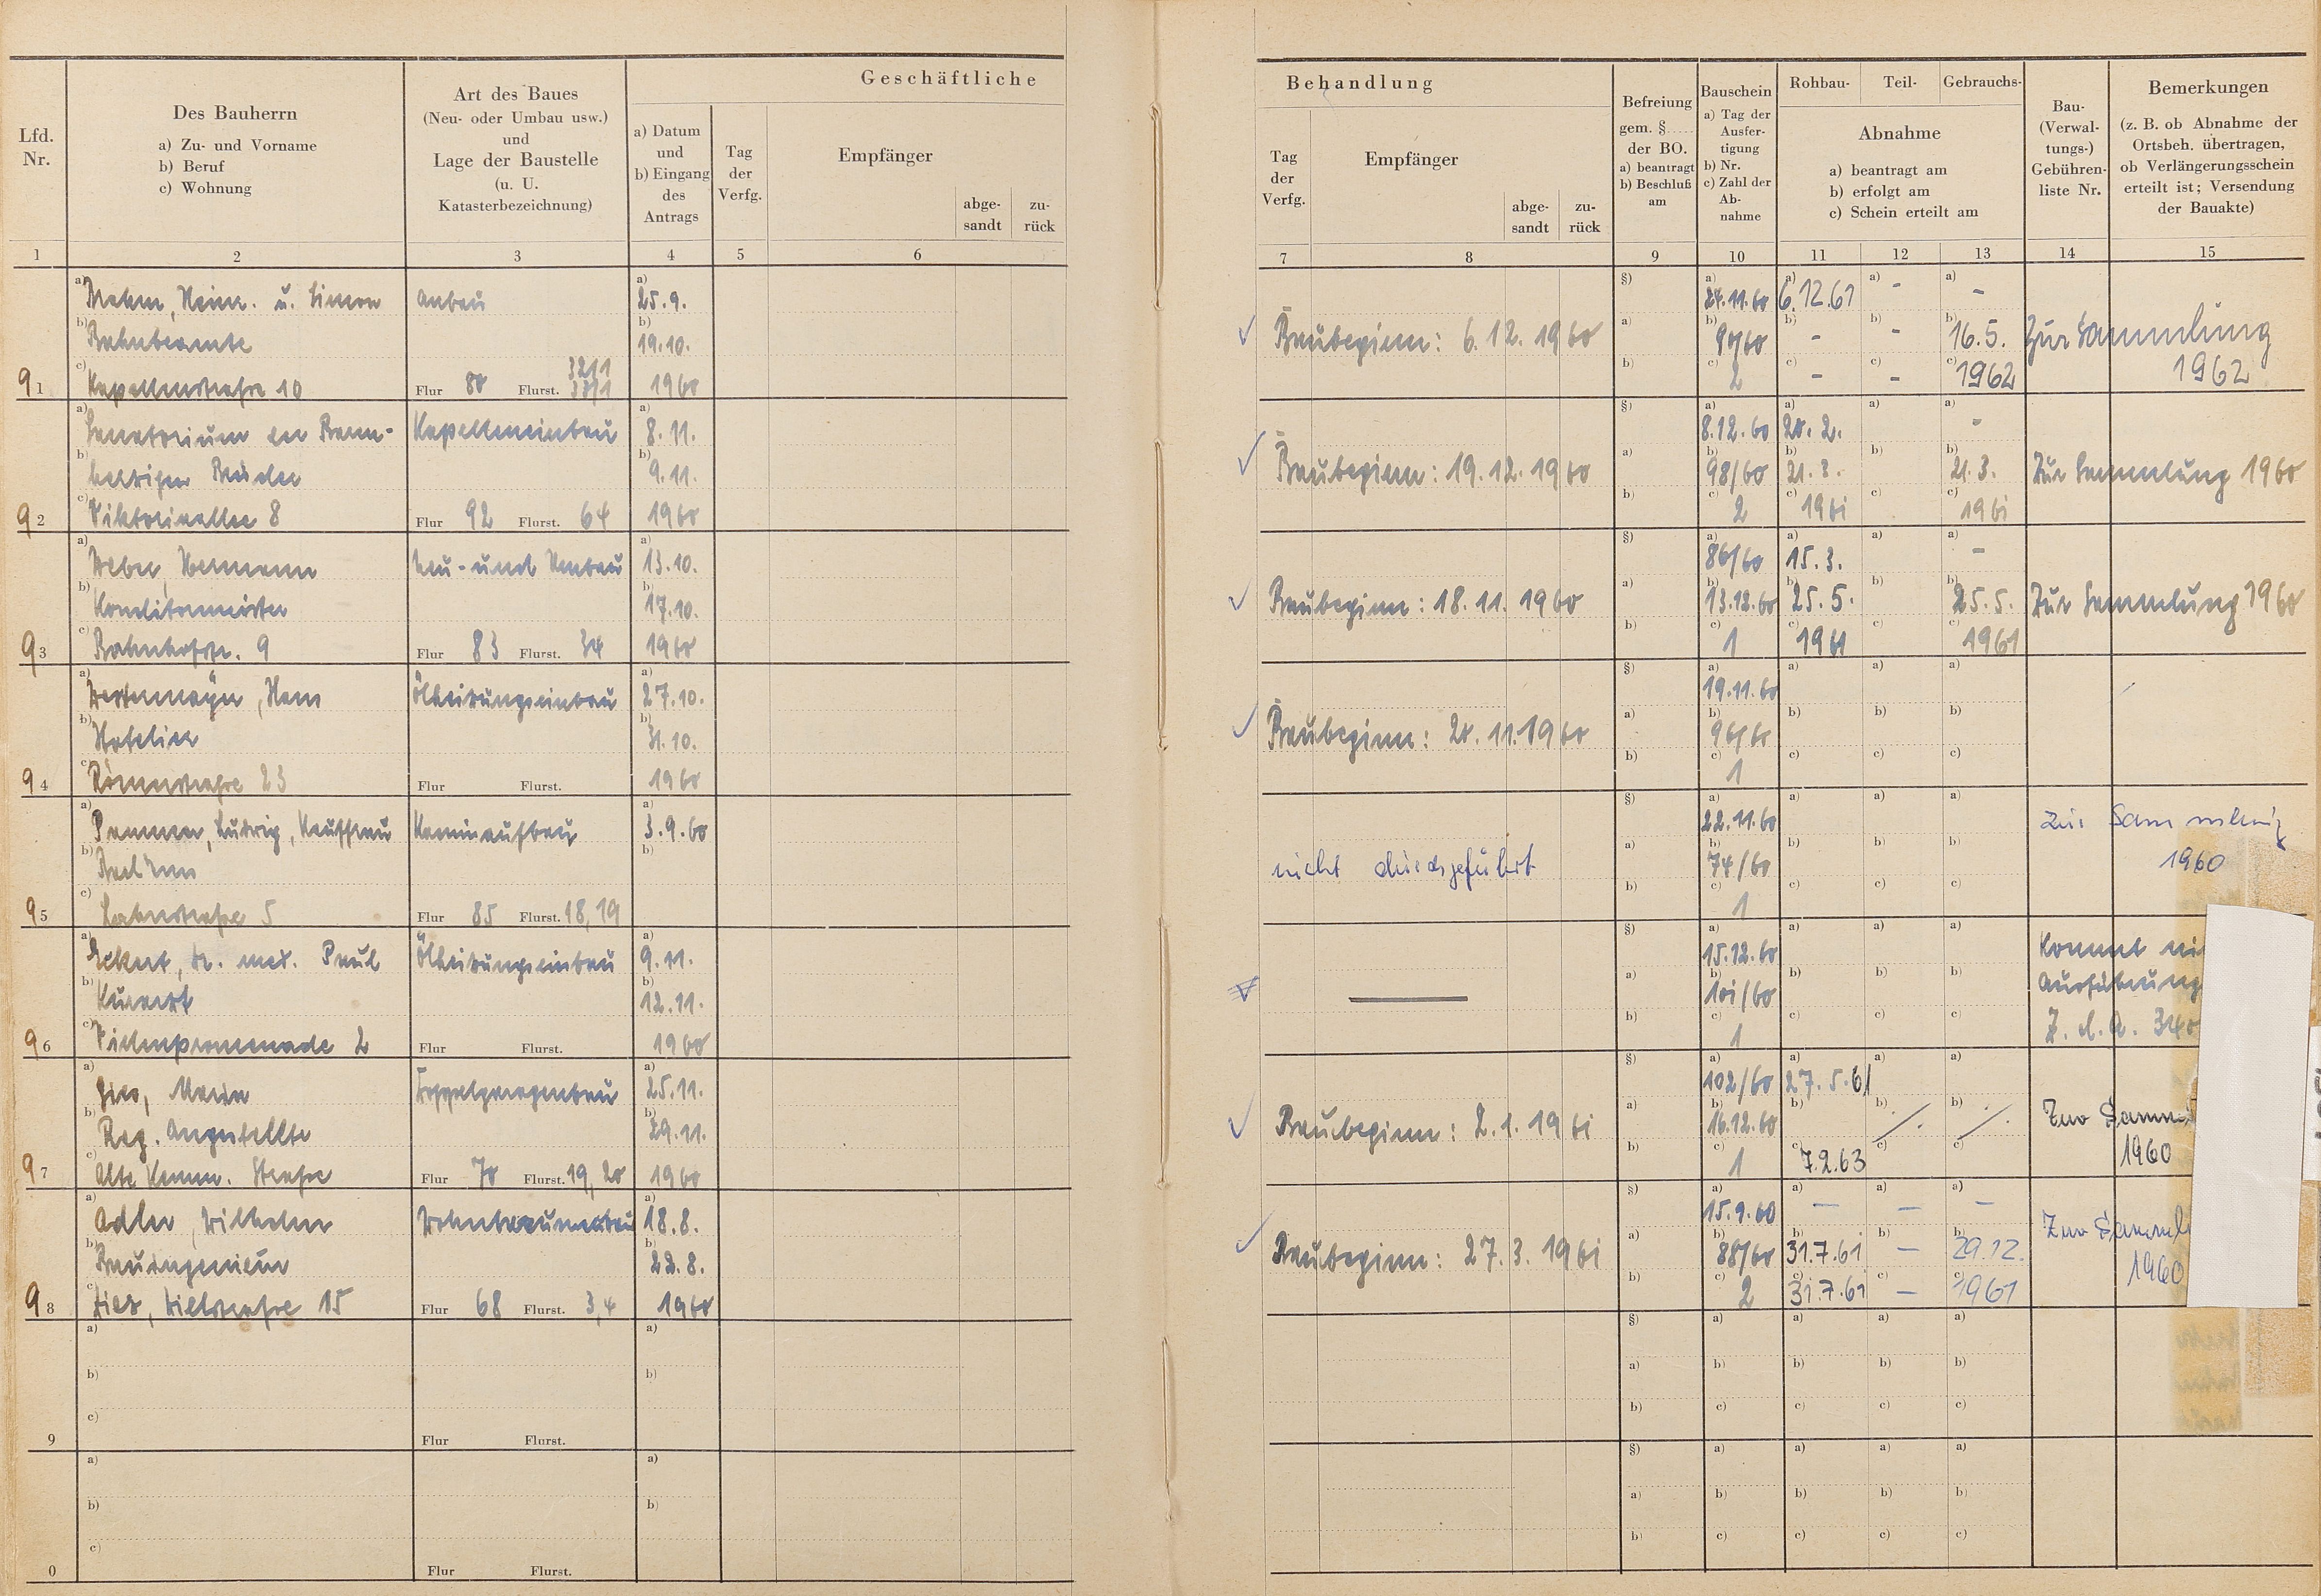 Geschäftliche
Lfd. Nr.
Des Bauherrn
a) Zu- und Vorname
b) Beruf
c) Wohnung
Art des Baues
(Neu- oder Umbau usw.)
und
Lage der Baustelle
(u. U.
Katasterbezeichnung)
a) Datum
und
b) Eingang
des
Antrags
Tag
der
Verfg.
Empfänger
abge-
sandt
zu-
rück
1 2 3 4 5 6
a) Heinr. u. Simon Anbau a) 25.9.
b) Bahnbeamte b) 19.10.
3211
91 c) Kapellenstrasse 10 Flur 80 Flurst. 1960
a) Sanatorium der Barm- Kapelleneinbau a) 8.11.
b) herzigen Brüder b) 9.11.
92 c) Viktoriaallee 8 Flur 92 Flurst. 64 1960
a) Weber, Hermann Neu- und Umbau a) 13.10.
b) Konditormeister b) 17.10.
93 c) Bahnhofstr. 9 Flur 83 Flurst. 34 1960
a) Hans Ölheizungseinbau a) 27.10.
b) Hotelier b) 31.10.
94 c) Römerstrasse 23 Flur Flurst. 1960
a) Ludwig, Kauffrau Kaminaufbau a) 3.9.60
b) b)
95 c) Lahnstrasse 5 Flur 85 Flurst. 18, 19
a) Eckert, Dr. med. Paul Ölheizungseinbau a) 9.11.
b) Kurarzt b) 12.11.
96 c) Villenpromenade 2 Flur Flurst. 1960
a) Maria Doppelgaragenbau a) 25.11.
b) Reg. Angestellte b) 29.11.
97 c) Alte Kemm. Strasse Flur 70 Flurst. 19, 20 1960
a) Adler, Wilhelm a) 18.8.
b) Bauingenieur b) 22.8.
98 c) Diez, Strasse 15 Flur 68 Flurst. 3,4 1960
a) a)
b) b)
c)
9 Flur Flurst.
a) a)
b) b)
c)
0 Flur Flurst.
Behandlung
Tag
der
Verfg.
Empfänger
abge-
sandt
zu-
rück
Befreiung
gem. §
der BO.
a) beantragt
b) Beschluß
am
Bauschein
a) Tag der
Ausfer-
tigung
b) Nr.
c) Zahl der
Ab-
nahme
Rohbau- Teil- Gebrauchs-
Abnahme
a) beantragt am
b) erfolgt am
c) Schein erteilt am
Bau-
(Verwal-
tungs-)
Gebühren-
liste Nr.
Bemerkungen
(z. B. ob Abnahme der
Ortsbeh. übertragen,
ob Verlängerungsschein
erteilt ist; Versendung
der Bauakte)
7 8 9 10 11 12 13 14 15
§) a) 24.11.60 a) 6.12.61 a) - a) -
Baubeginn: 6.12.1960 a) b) 90/60 b) - b) - b) 16.5. Zur Sammlung
b) c) 2 c) - c) - c) 1962 1962
§) a) 8.12.60 a) 20.2. a) a) -
Baubeginn: 19.12.1960 a) b) 98/60 b) 21.3. b) b) 21.3. Zur Sammlung 1960
b) c) 2 c) 1961 c) c) 1961
§) a) 86/60 a) 15.3. a) a) -
Baubeginn: 18.11.1960 a) b) 13.12.60 b) 25.5. b) b) 25.5. Zur Sammlung 1960
b) c) 1 c) 1961 c) c) 1961
§) a) 19.11.60 a) a) a)
Baubeginn: 20.11.1960 a) b) 96/60 b) b) b)
b) c) 1 c) c) c)
§) a) 22.11.60 a) a) a) zur Sammlung
nicht durchgeführt a) b) 74/60 b) b) b) 1960
b) c) 1 c) c) c)
§) a) 15.12.60 a) a) a) Kommt
a) b) 101/60 b) b) b) Ausführung
b) c) 1 c) c) c) Z. d. A. 340
§) a) 102/60 a) 27.5.61 a) a)
Baubeginn: 2.1.1961 a) b) 16.12.60 b) b) b) Zur
b) c) 1 c) 7.2.63 c) c) 1960
§) a) 15.9.60 a) — a) — a) —
Baubeginn: 27.3.1961 a) b) 88/60 b) 31.7.61 b) — b) 29.12. Zur
b) c) 2 c) 31.7.61 c) — c) 1961 1960
§) a) a) a) a)
a) b) b) b) b)
b) c) c) c) c)
§) a) a) a) a)
a) b) b) b) b)
b) c) c) c) c)